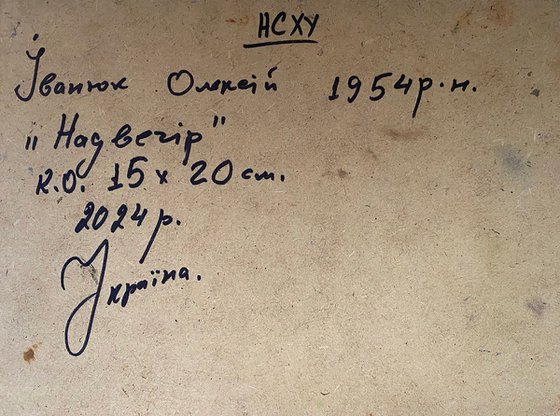 НСХУ
Іванюк Олексій 1954 р.н.
"Надвечір"
к.о. 15 x 20 см.
2024 р.
Україна.